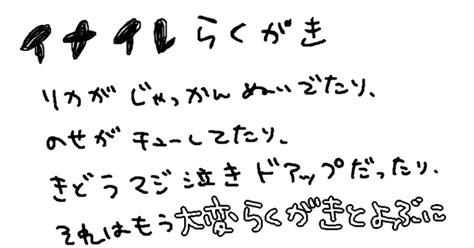 イナイレらくがき
リカがじゃっかんぬいでたり、
のせがチューしてたり、
きどうマジ泣きドアップだったり、
それはもう大変らくがきとよぶに